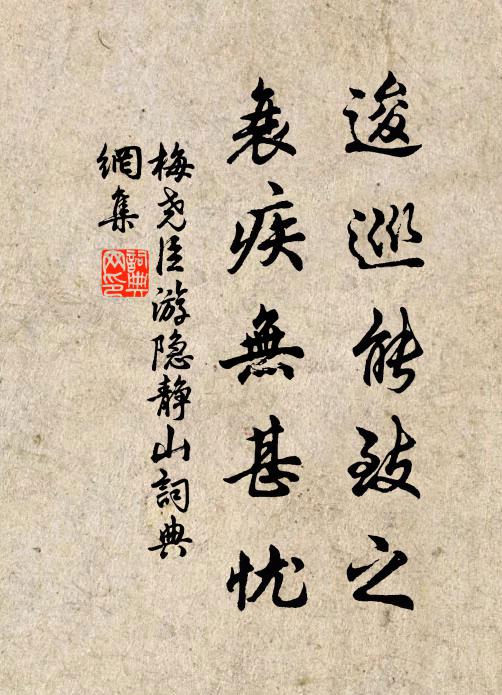 逡巡能致之
衰疾無甚忧
梅尧臣游隐静山詞典
網集
詞典
网印